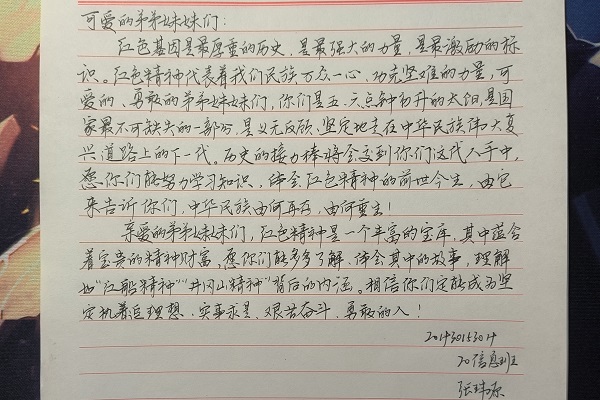 可爱的弟弟妹妹们：
红色基因是最厚重的历史，是最强大的力量，是最激励的标
识。红色精神代表着我们民族万众一心、攻克坚难的力量，可
爱的、勇敢的弟弟妹妹们，你们是五、六点钟初升的太阳，是国
家最不可缺失的一部分，是义无反顾、坚定地走在中华民族伟大复
兴道路上的下一代。历史的接力棒将会交到你们这代人手中，
愿你们能努力学习知识，体会红色精神的前世今生，由它
来告诉你们，中华民族由何再存，由何重生！
亲爱的弟弟妹妹们，红色精神是一个丰富的宝库，其中蕴含
着宝贵的精神财富，愿你们能多多了解、体会其中的故事，理解
如“红船精神”“井冈山精神”背后的内涵。相信你们定能成为坚
定执着追理想、实事求是、艰苦奋斗、勇敢的人！
20信息班
张玮原